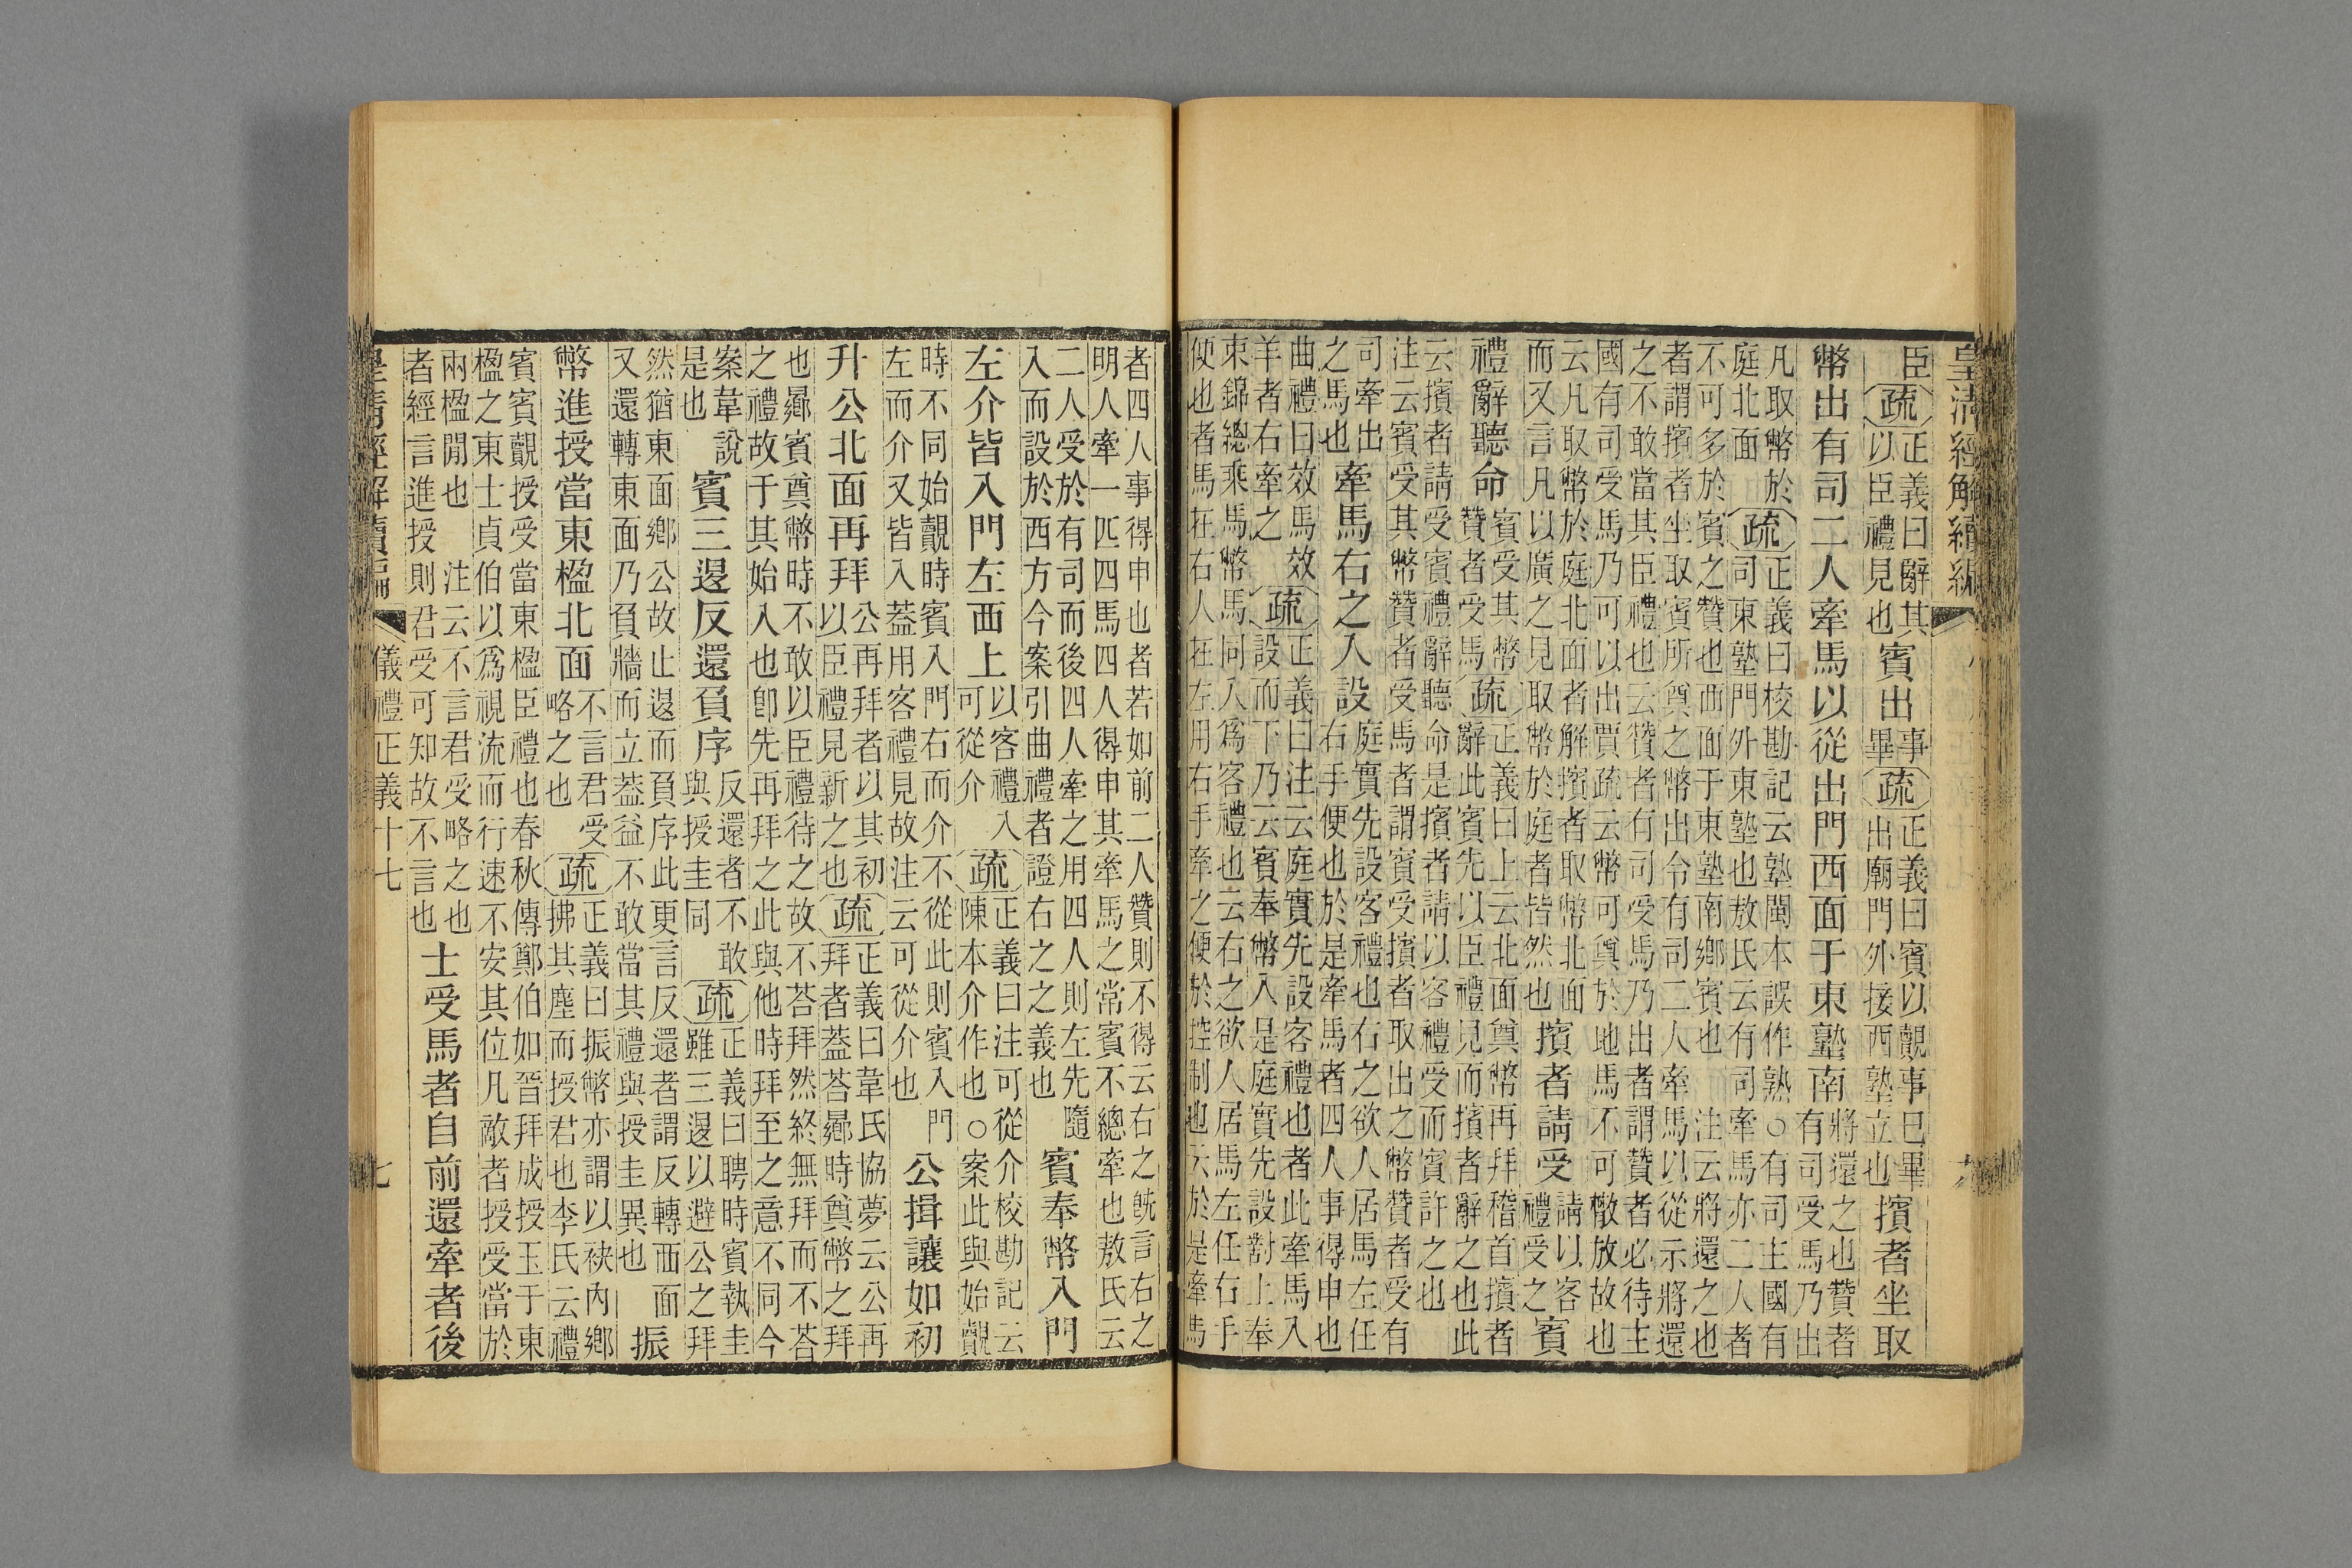 皇清經解續編
臣疏正義曰辭其以臣禮見也賓出事畢疏正義曰賓以覿事已畢出廟門外接西塾立也擯者坐取
幣出有司二人牽馬以從出門西面于東塾南將還之也贊者有司受馬乃出
凡取幣於庭北面疏正義曰校勘記云塾閩本誤作熟○有司主國有司東塾門外東塾也敖氏云有司牽馬亦二人者
不可多於賓之贊也西面于東塾南鄉賓也 注云將還之也
者謂擯者坐取賓所奠之幣出令有司二人牽馬以從示將還
之不敢當其臣禮也云贊者有司受馬乃出者謂贊者必待主
國有司受馬乃可以出賈疏云幣可奠於地馬不可散放故也
云凡取幣於庭北面者解擯者取幣北面而又言凡以廣之見取幣於庭者皆然也擯者請受請以客禮受之賓
禮辭聽命賓受其幣贊者受馬疏正義曰上云北面奠幣再拜稽首擯者辭此賓先以臣禮見而擯者辭之也此
云擯者請受賓禮辭聽命是擯者請以客禮受而賓許之也
注云賓受其幣贊者受馬者謂賓受擯者取出之幣贊者受有
司牽出之馬也牽馬右之入設庭實先設客禮也右之欲人居馬左任右手便也於是牽馬者四人事得申也
曲禮曰效馬效羊者右牽之疏正義曰注云庭實先設客禮也者此牽馬入設而下乃云賓奉幣入是庭實先設對上奉
束錦總乘馬幣馬同入爲客禮也云右之欲人居馬左任右手
便也者馬在右人在左用右手牽之便於控制也云於是牽馬
者四人事得申也者若如前二人贊則不得云右之旣言右之
明人牽一匹四馬四人得申其牽馬之常賓不總牽也敖氏云
二人受於有司而後四人牽之用四人則左先隨入而設於西方今案引曲禮者證右之之義也賓奉幣入門
左介皆入門左西上以客禮入可從介疏正義曰注可從介校勘記云陳本介作也○案此與始覿
時不同始覿時賓入門右而介不從此則賓入門左而介又皆入蓋用客禮見故注云可從介也公揖讓如初
升公北面再拜公再拜者以其初以臣禮見新之也疏正義曰韋氏協夢云公再拜者蓋荅曏時奠幣之拜
也曏賓奠幣時不敢以臣禮待之故不荅拜然終無拜而不荅
之禮故于其始入也卽先再拜之此與他時拜至之意不同今
案韋說是也賓三退反還負序反還者不敢與授圭同疏正義曰聘時賓執圭雖三退以避公之拜
然猶東面鄉公故止退而負序此更言反還者謂反轉西面又還轉東面乃負牆而立蓋益不敢當其禮與授圭異也振
幣進授當東楹北面不言君受略之也疏正義曰振幣亦謂以袂內鄉拂其塵而授君也李氏云禮
賓賓覿授受當東楹臣禮也春秋傳鄭伯如晉拜成授玉于東
楹之東士貞伯以爲視流而行速不安其位凡敵者授受當於
兩楹閒也 注云不言君受略之也者經言進授則君受可知故不言也士受馬者自前還牽者後
皇清經解續編 儀禮正義十七 七